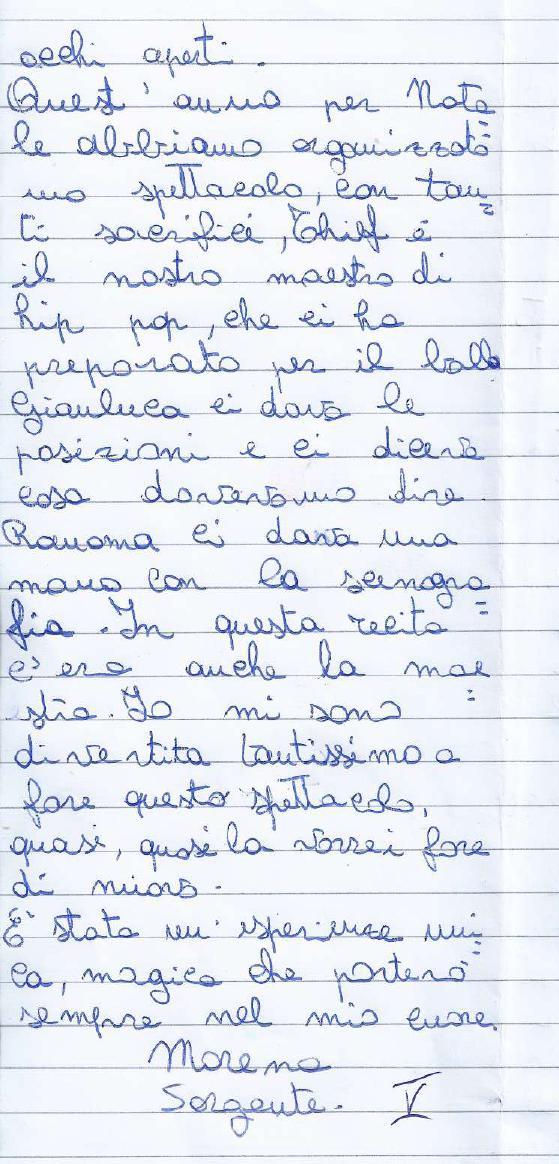 occhi aperti.
Quest'anno per Nata=
le abbiamo organizzato
uno spettacolo, con tan=
ti sacrifici, Chief è
il nostro maestro di
hip pop, che ci ha
preparato per il ballo
Gianluca ci dava le
posizioni e ci diceva
cosa dovevamo dire.
Ramona ci dava una
mano con la scenogra=
fia. In questa recita
c'era anche la mae=
stra. Io mi sono
divertita tantissimo a
fare questo spettacolo,
quasi, quasi la vorrei fare
di nuovo.
È stata un'esperienza uni=
ca, magica che porterò
sempre nel mio cuore.
Morena
Sorgente. V